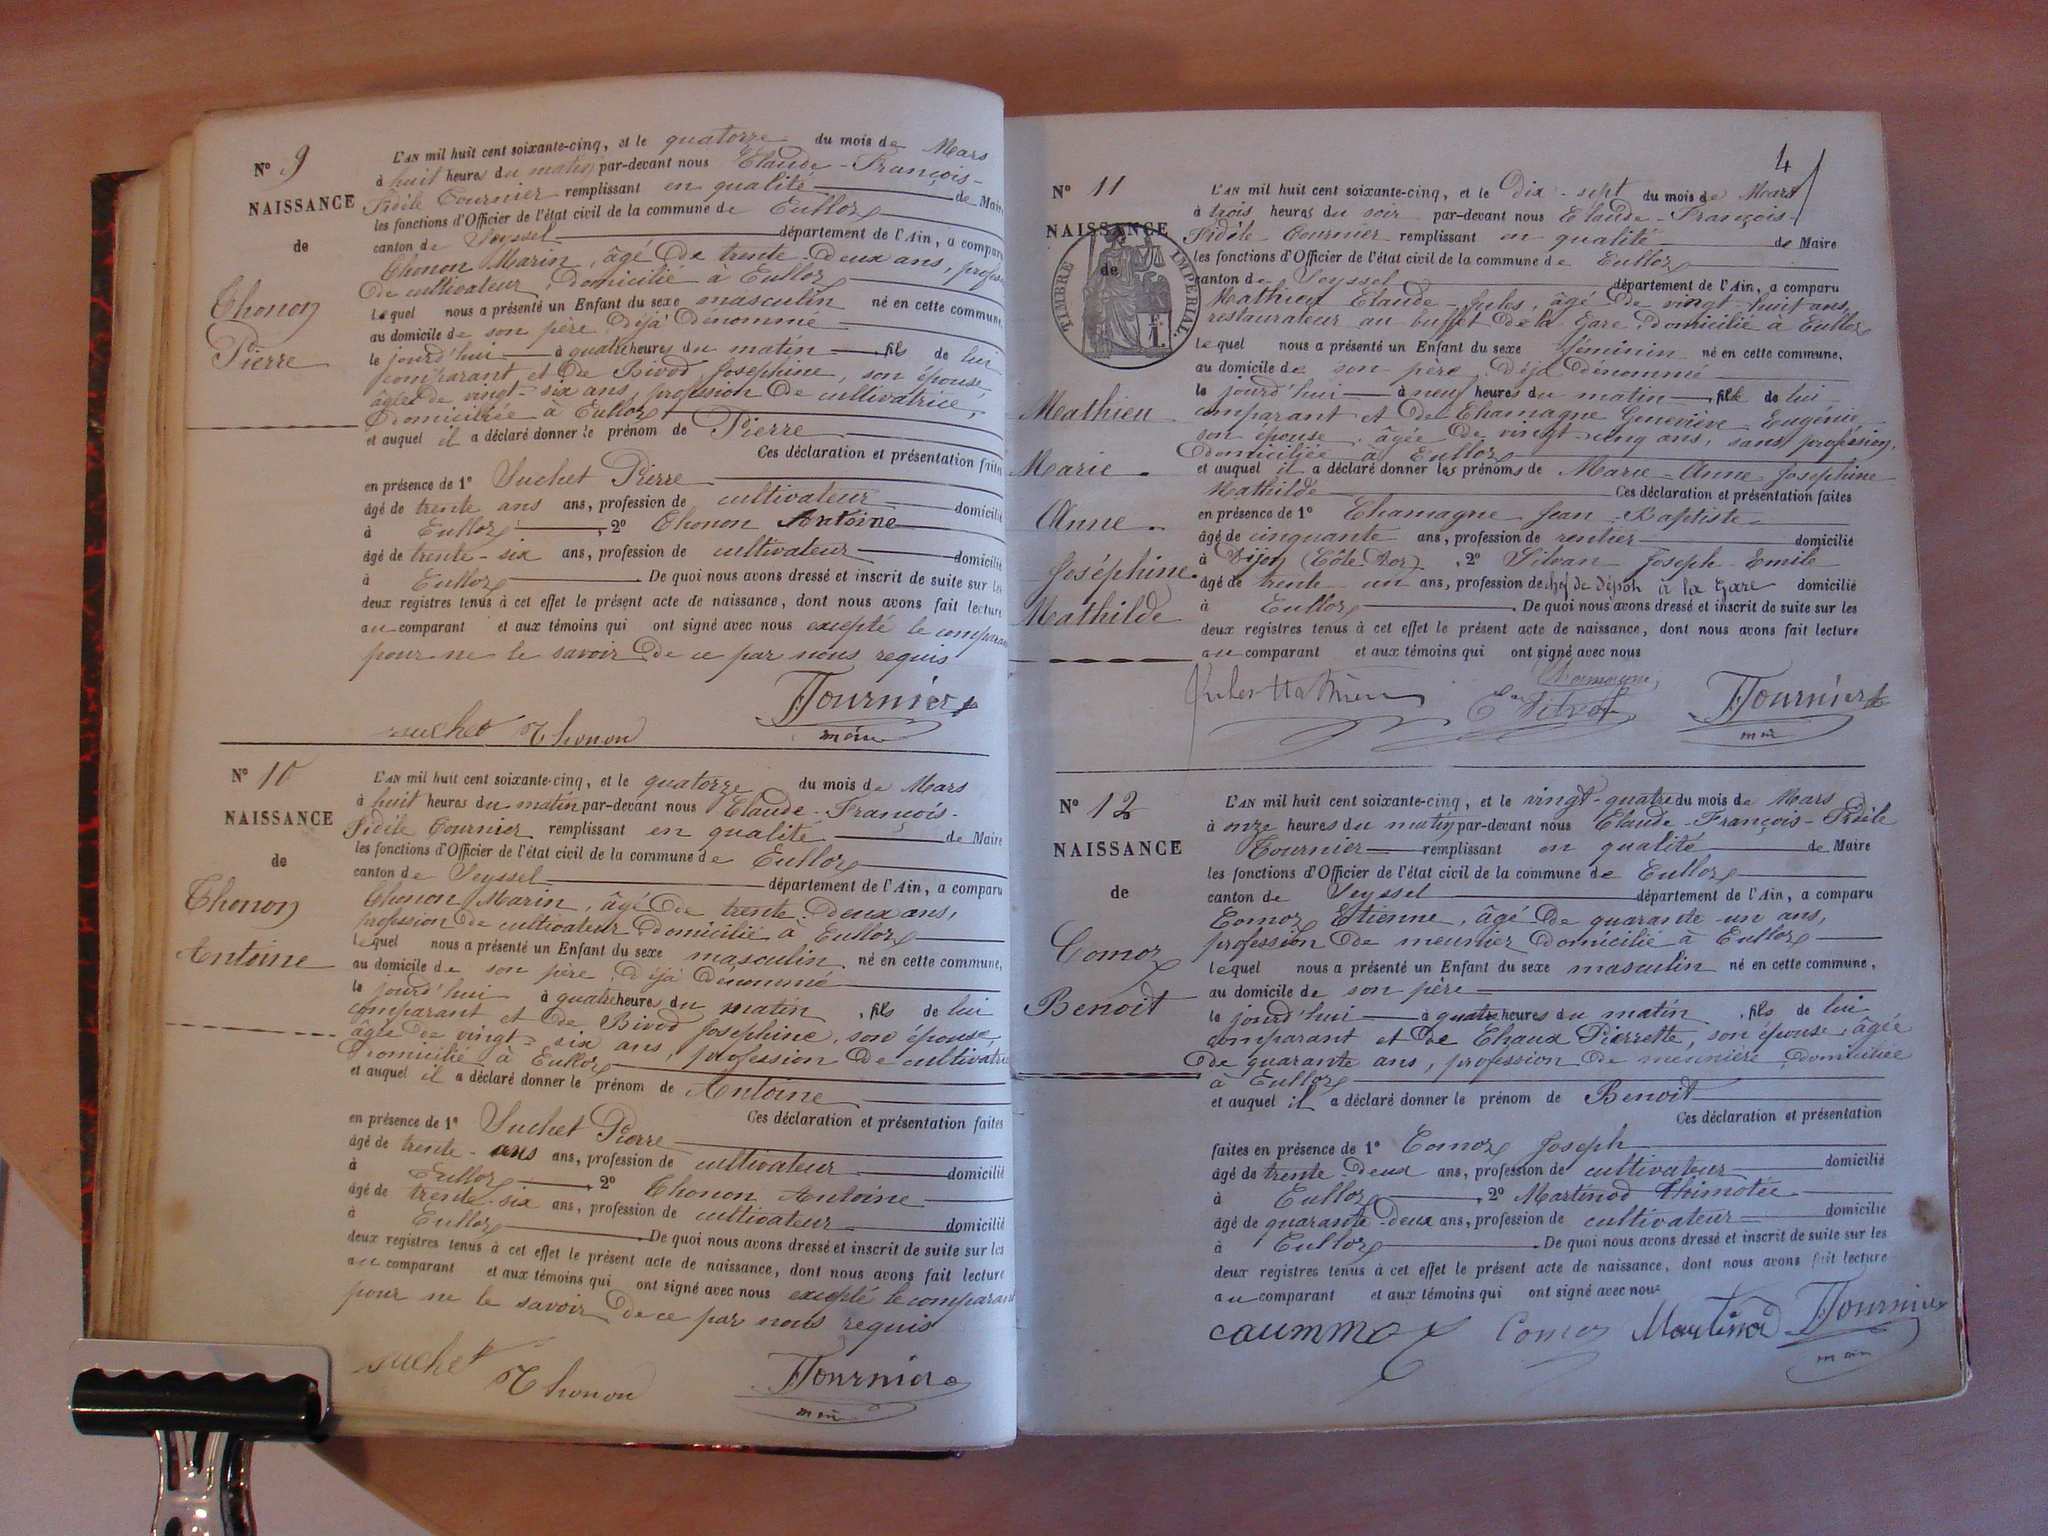 N° 9
NAISSANCE
de
Thonon
Pierre
L'AN mil huit cent soixante-cinq, et le quatorze du mois de Mars
à huit heures du matin par-devant nous Claude-François-
Fidèle Tournier remplissant en qualité de Maire
les fonctions d'Officier de l'état civil de la commune de Culloz
canton de Seyssel département de l'Ain, a comparu
Thonon Marin, âgé de trente-deux ans, profession
de cultivateur, domicilié à Culloz
lequel nous a présenté un Enfant du sexe masculin né en cette commune,
au domicile de son père déjà dénommé
le jourd'hui à quatre heures du matin, fils de lui
comparant et de Bivod Joséphine, son épouse,
âgée de vingt-six ans, profession de cultivatrice,
domiciliée à Culloz
et auquel il a déclaré donner le prénom de Pierre
Ces déclaration et présentation faites
en présence de 1° Suchet Pierre
âgé de trente ans ans, profession de cultivateur domicilié
à Culloz, 2° Thonon Antoine
âgé de trente-six ans, profession de cultivateur domicilié
à Culloz. De quoi nous avons dressé et inscrit de suite sur les
deux registres tenus à cet effet le présent acte de naissance, dont nous avons fait lecture
au comparant et aux témoins qui ont signé avec nous excepté le comparant
pour ne le savoir de ce par nous requis
suchet Thonon Tournier
maire
N° 10
NAISSANCE
de
Thonon
Antoine
L'AN mil huit cent soixante-cinq, et le quatorze du mois de Mars
à huit heures du matin par-devant nous Claude-François-
Fidèle Tournier remplissant en qualité de Maire
les fonctions d'Officier de l'état civil de la commune de Culloz
canton de Seyssel département de l'Ain, a comparu
Thonon Marin, âgé de trente-deux ans,
profession de cultivateur domicilié à Culloz
lequel nous a présenté un Enfant du sexe masculin né en cette commune,
au domicile de son père déjà dénommé
le jourd'hui à quatre heures du matin, fils de lui
comparant et de Bivod Joséphine, son épouse,
âgée de vingt-six ans, profession de cultivatrice
domicilié à Culloz
et auquel il a déclaré donner le prénom de Antoine
Ces déclaration et présentation faites
en présence de 1° Suchet Pierre
âgé de trente-ans ans, profession de cultivateur domicilié
à Culloz, 2° Thonon Antoine
âgé de trente-six ans, profession de cultivateur domicilié
à Culloz. De quoi nous avons dressé et inscrit de suite sur les
deux registres tenus à cet effet le présent acte de naissance, dont nous avons fait lecture
au comparant et aux témoins qui ont signé avec nous excepté le comparant
pour ne le savoir de ce par nous requis
suchet Thonon Tournier
maire
4
N° 11
NAISSANCE
de
TIMBRE IMPÉRIAL
F. 1.
Mathieu
Marie
Anne
Joséphine
Mathilde
L'AN mil huit cent soixante-cinq, et le Dix-sept du mois de Mars
à trois heures du soir par-devant nous Claude-François-
Fidèle Tournier remplissant en qualité de Maire
les fonctions d'Officier de l'état civil de la commune de Culloz
canton de Seyssel département de l'Ain, a comparu
Mathieu Claude-Jules, âgé de vingt-huit ans,
restaurateur au buffet de la Gare, domicilié à Culloz
lequel nous a présenté un Enfant du sexe féminin né en cette commune,
au domicile de son père déjà dénommé
le jourd'hui à neuf heures du matin, fille de lui
comparant et de Chamagne Geneviève Eugénie
son épouse, âgée de vingt-cinq ans, sans profession,
domiciliée à Culloz
et auquel il a déclaré donner les prénoms de Marie-Anne Joséphine
Mathilde Ces déclaration et présentation faites
en présence de 1° Chamagne Jean-Baptiste
âgé de cinquante ans, profession de rentier domicilié
à Dijon (Côte d'or), 2° Silvan Joseph Emile
âgé de trente un ans, profession de chef de dépôt à la Gare domicilié
à Culloz. De quoi nous avons dressé et inscrit de suite sur les
deux registres tenus à cet effet le présent acte de naissance, dont nous avons fait lecture
au comparant et aux témoins qui ont signé avec nous
Jules Mathieu Chamagne Tournier
maire
N° 12
NAISSANCE
de
Comoz
Benoit
L'AN mil huit cent soixante-cinq, et le vingt-quatre du mois de Mars
à onze heures du matin par-devant nous Claude-François-Fidèle
Tournier remplissant en qualité de Maire
les fonctions d'Officier de l'état civil de la commune de Culloz
canton de Seyssel département de l'Ain, a comparu
Comoz Etienne, âgé de quarante-un ans,
profession de meunier domicilié à Culloz
lequel nous a présenté un Enfant du sexe masculin né en cette commune,
au domicile de son père
le jourd'hui à quatre heures du matin, fils de lui
comparant et de Chaux Pierrette, son épouse, âgée
de quarante ans, profession de meunière, domiciliée
à Culloz
et auquel il a déclaré donner le prénom de Benoit
Ces déclaration et présentation
faites en présence de 1° Comoz Joseph
âgé de trente-deux ans, profession de cultivateur domicilié
à Culloz, 2° Martinod Thimotée
âgé de quarante-deux ans, profession de cultivateur domicilié
à Culloz. De quoi nous avons dressé et inscrit de suite sur les
deux registres tenus à cet effet le présent acte de naissance, dont nous avons fait lecture
au comparant et aux témoins qui ont signé avec nous
Comoz Martinod Tournier
maire